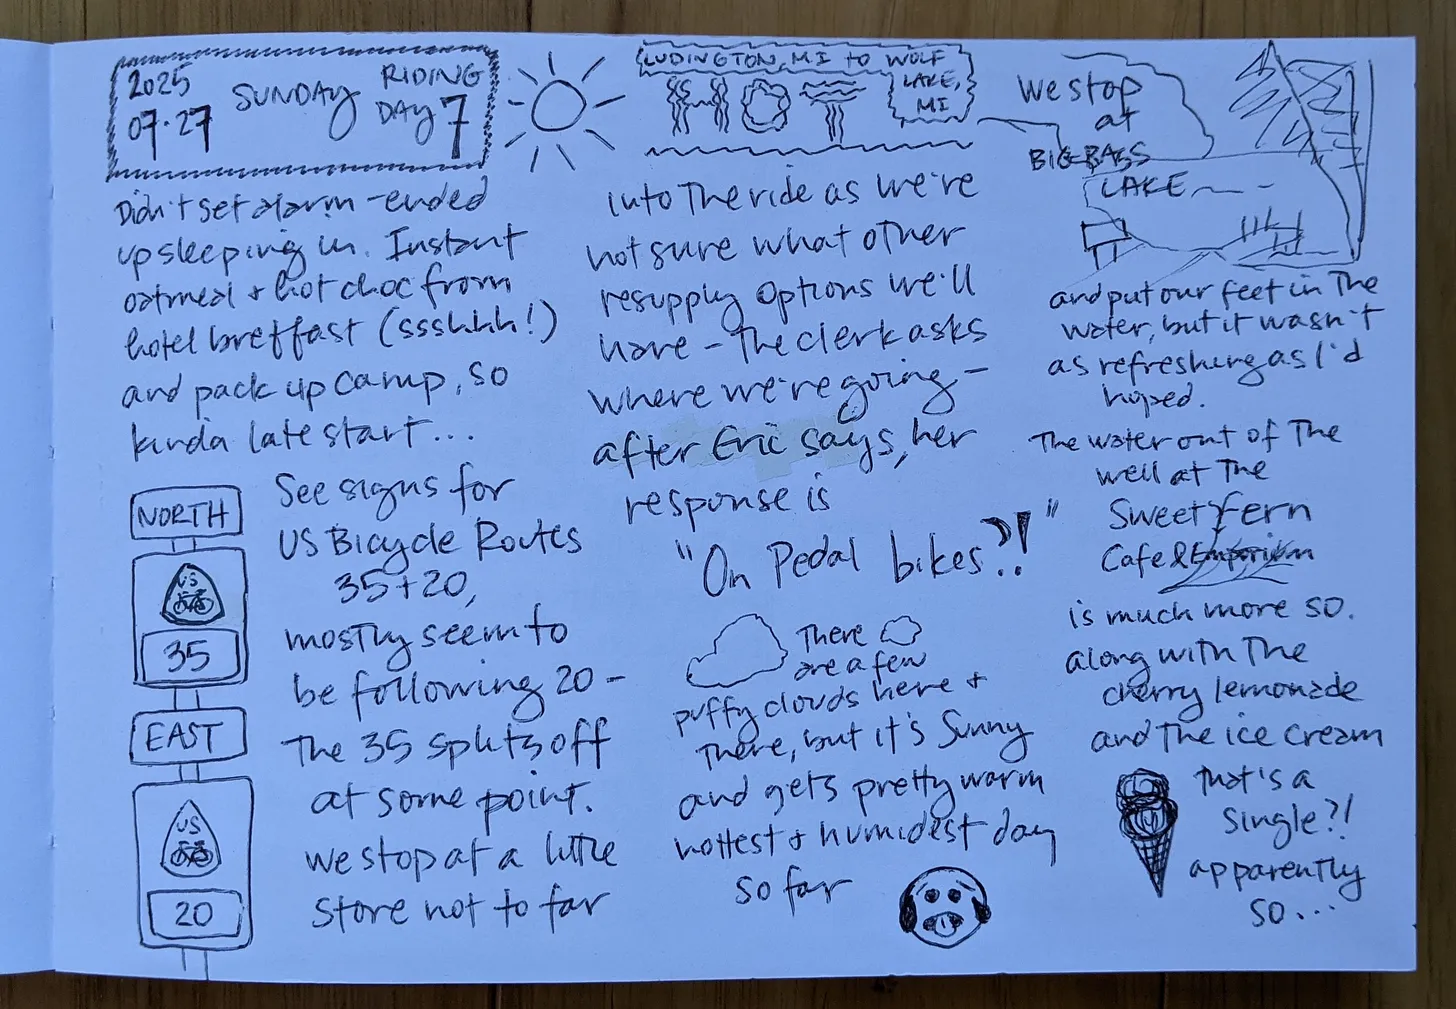 2025
07.27
SUNDAY
RIDING
DAY 7
Didn't set alarm - ended
up sleeping in. Instant
oatmeal + hot choc from
hotel breffast (ssshhh!)
and pack up camp, so
kinda late start...
NORTH
US
35
EAST
US
20
See signs for
US Bicycle Routes
35 + 20,
mostly seem to
be following 20 -
The 35 splits off
at some point.
We stop at a little
store not to far
LUDINGTON, MI to WOLF
LAKE,
MI
HOT
into The ride as we're
not sure what other
resupply options we'll
have - The clerk asks
where we're going -
after Eric says, her
response is
"On Pedal bikes?!"
There
are a few
puffy clouds here +
There, but it's Sunny
and gets pretty warm
hottest + humidest day
so far
We stop
at
BIG BASS
LAKE
and put our feet in The
water, but it wasn't
as refreshing as I'd
hoped.
The water out of The
well at The
Sweet Fern
Cafe & Emporium
is much more so.
along with The
cherry lemonade
and The ice cream
That's a
single?!
apparently
so...